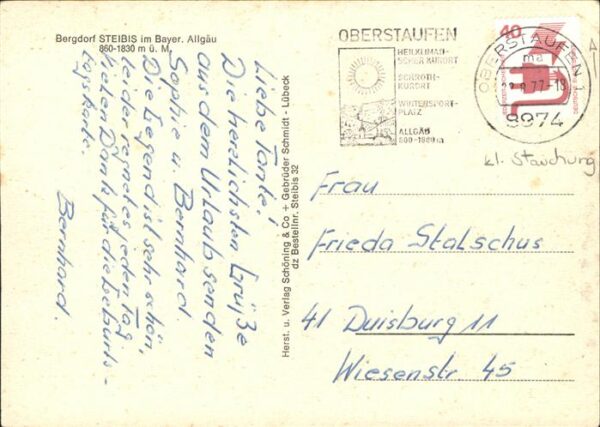 Bergdorf STEIBIS im Bayer. Allgäu
860-1830 m ü. M.
Liebe Tante!
Die herzlichsten Grüße
aus dem Urlaub senden
Sophie u. Bernhard
Die Gegend ist sehr schön,
leider regnet es jeden Tag
Vielen Dank für die Geburts-
tagskarte.
Bernhard.
Herst. u. Verlag Schöning & Co + Gebrüder Schmidt - Lübeck
dz Bestellnr. Steibis 32
OBERSTAUFEN
HEILKLIMATI-
SCHER KURORT
SCHROTH-
KURORT
WINTERSPORT-
PLATZ
ALLGÄU
800-1800 m
40
OBERSTAUFEN 1
ma
77-18
8974
kl. Stauchung
Frau
Frieda Stalschus
41 Duisburg 11
Wiesenstr. 45